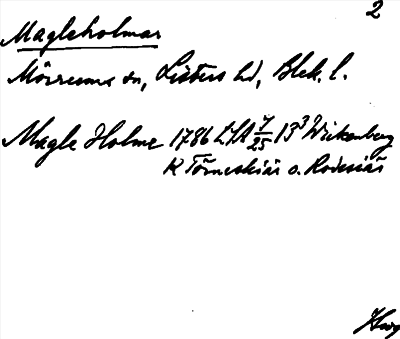 2
Magleholmar
Mörrums sn, Listers hd, Blek. l.
Magle Holme 1786 LSA 7/25 13³ Wickenberg
K Törneskär o. Rodeskär